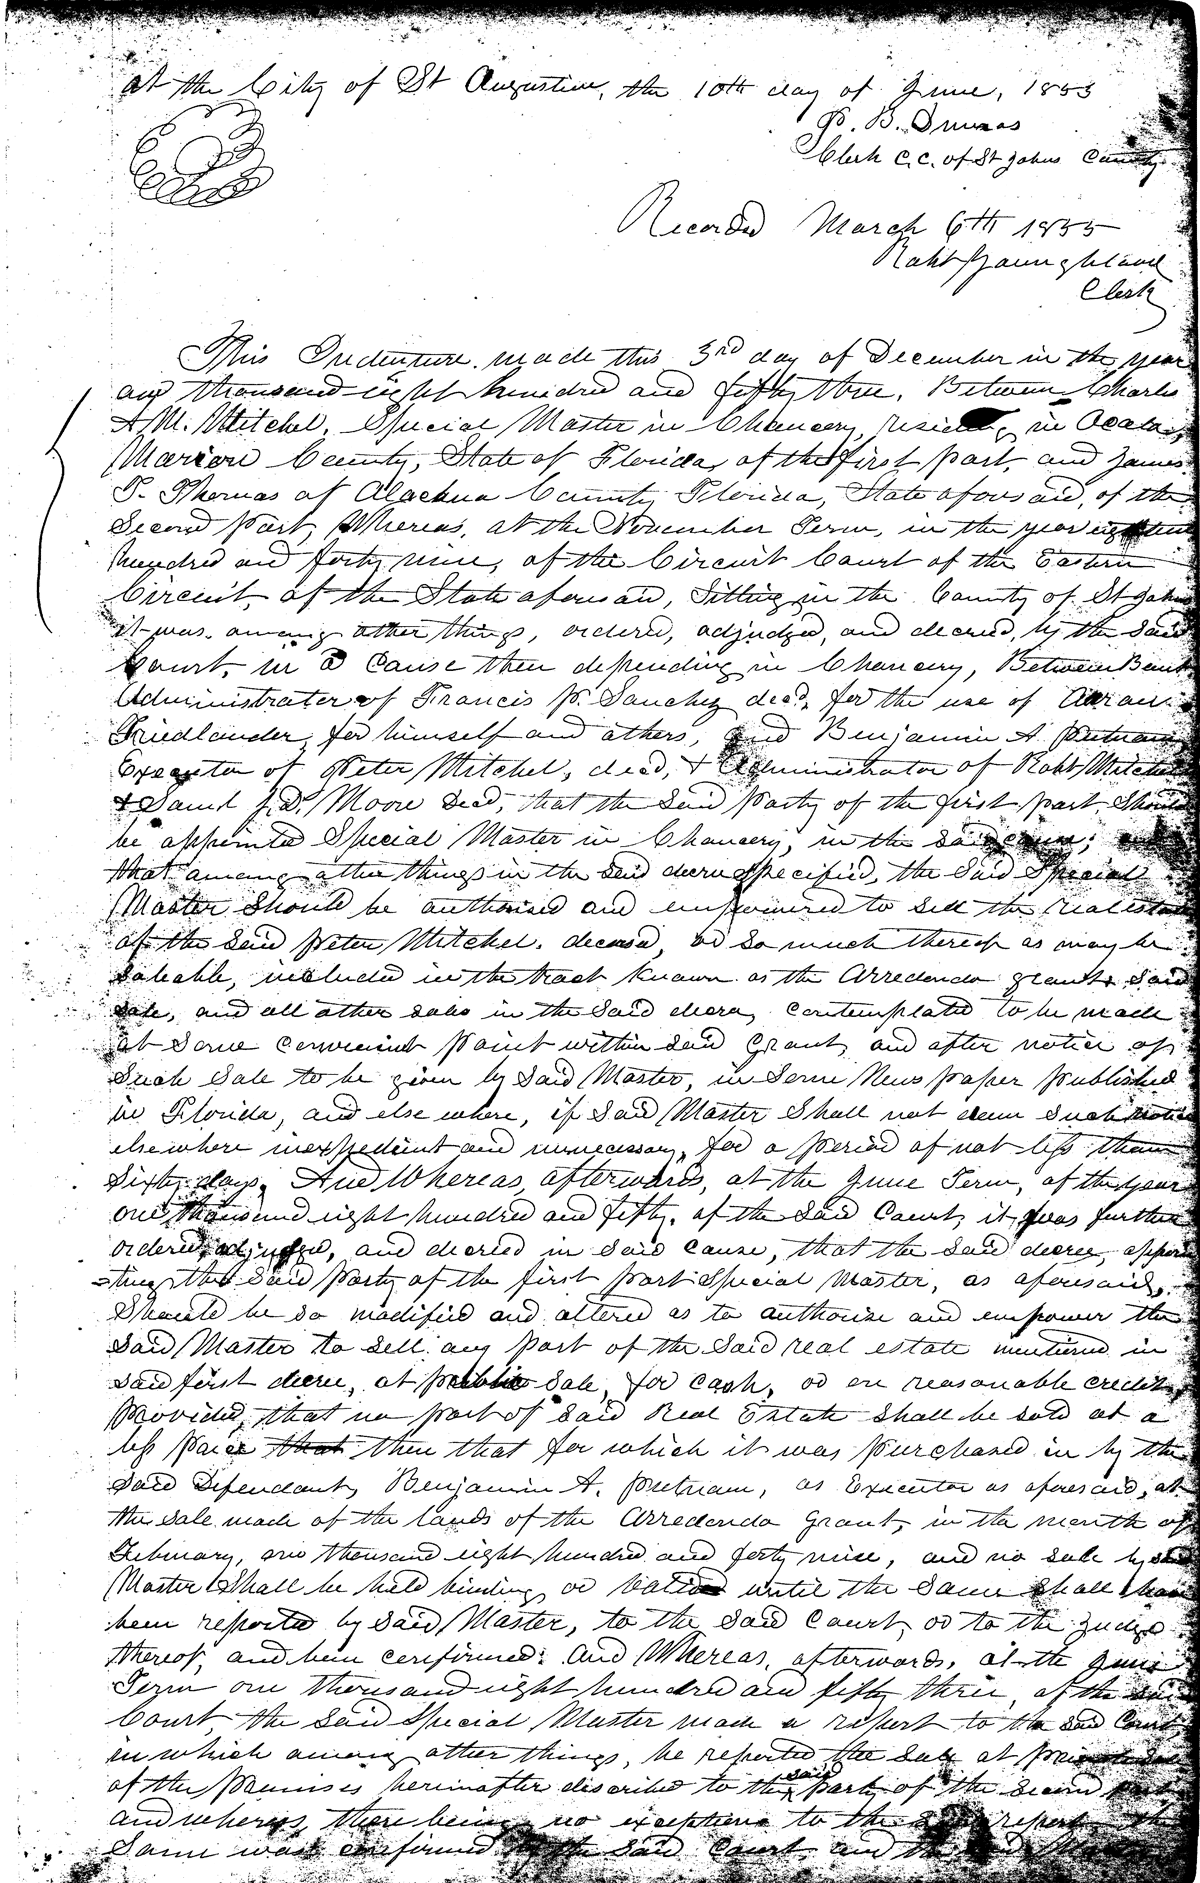 at the City of St Augustine, the 10th day of June, 1853
P. B. Dumas
Clerk C.C. of St Johns County
Recorded March 6th 1855
Robt Youngblood
Clerk
This Indenture made this 3rd day of December in the year
one thousand eight hundred and fifty three, Between Charles
A M. Mitchel, Special Master in Chancery, residing in Ocala,
Marion County, State of Florida, of the first part, and James
T. Thomas of Alachua County Florida, State aforesaid, of the
Second part, Whereas, at the November Term, in the year eighteen
hundred and forty nine, of the Circuit Court of the Eastern
Circuit, of the State aforesaid, Sitting in the County of St Johns
it was among other things, ordered, adjudged, and decreed, by the Said
Court, in a cause then depending in Chancery, Between
Administrator of Francis P. Sanchez decd, for the use of
Friedlander, for himself and others, and Benjamin A. Putnam
Executor of Peter Mitchel, decd, & Administrator of Robt Mitchel
& Saml J. D. Moore decd, that the Said party of the first part, Should
be appointed Special Master in Chancery, in the Said cause;
that among other things in the Said decree Specified, the Said Special
Master Should be authorised and empowered to Sell the real estate
of the Said Peter Mitchel. deceased, or So much thereof as may be
Saleable, included in the tract known as the Arredondo grant, Said
Sale, and all other Sales in the Said decree, contemplated to be made
at Some convenient point within Said Grant, and after notice of
Such Sale to be given by Said Master, in Some News paper published
in Florida, and else where, if Said Master Shall not deem Such notice
elsewhere inexpedient and unnecessary, for a period of not less than
Sixty days, And Whereas, afterwards, at the June Term, of the year
one thousand eight hundred and fifty, of the Said Court, it was further
ordered, adjudged, and decreed in Said cause, that the Said decree, appoin
-ting the Said party of the first part Special Master, as aforesaid,
Should be So modified and altered as to authorise and empower the
Said Master to Sell any part of the Said real estate mentioned in
Said first decree, at public Sale, for cash, or on reasonable credit,
Provided, that no part of Said Real Estate Shall be Sold at a
less price that then that for which it was purchased in by the
Said Defendant, Benjamin A. Putnam, as Executor as aforesaid, at
the Sale made of the lands of the Arredondo Grant, in the month of
February, one thousand eight hundred and forty nine, and no Sale by Said
Master Shall be held binding or valid until the Same Shall have
been reported by Said Master, to the Said Court, or to the Judge
thereof, and been confirmed: And Whereas, afterwards, at the June
Term one thousand eight hundred and fifty three, of the Said
Court, the Said Special Master made a report to the Said Court
in which among other things, he reported the Sale at private Sale
of the premises hereinafter discribed to the said party of the Second part
and whereas, there being no exceptions to the report the
Same was confirmed by the Said Court, and the Said Master